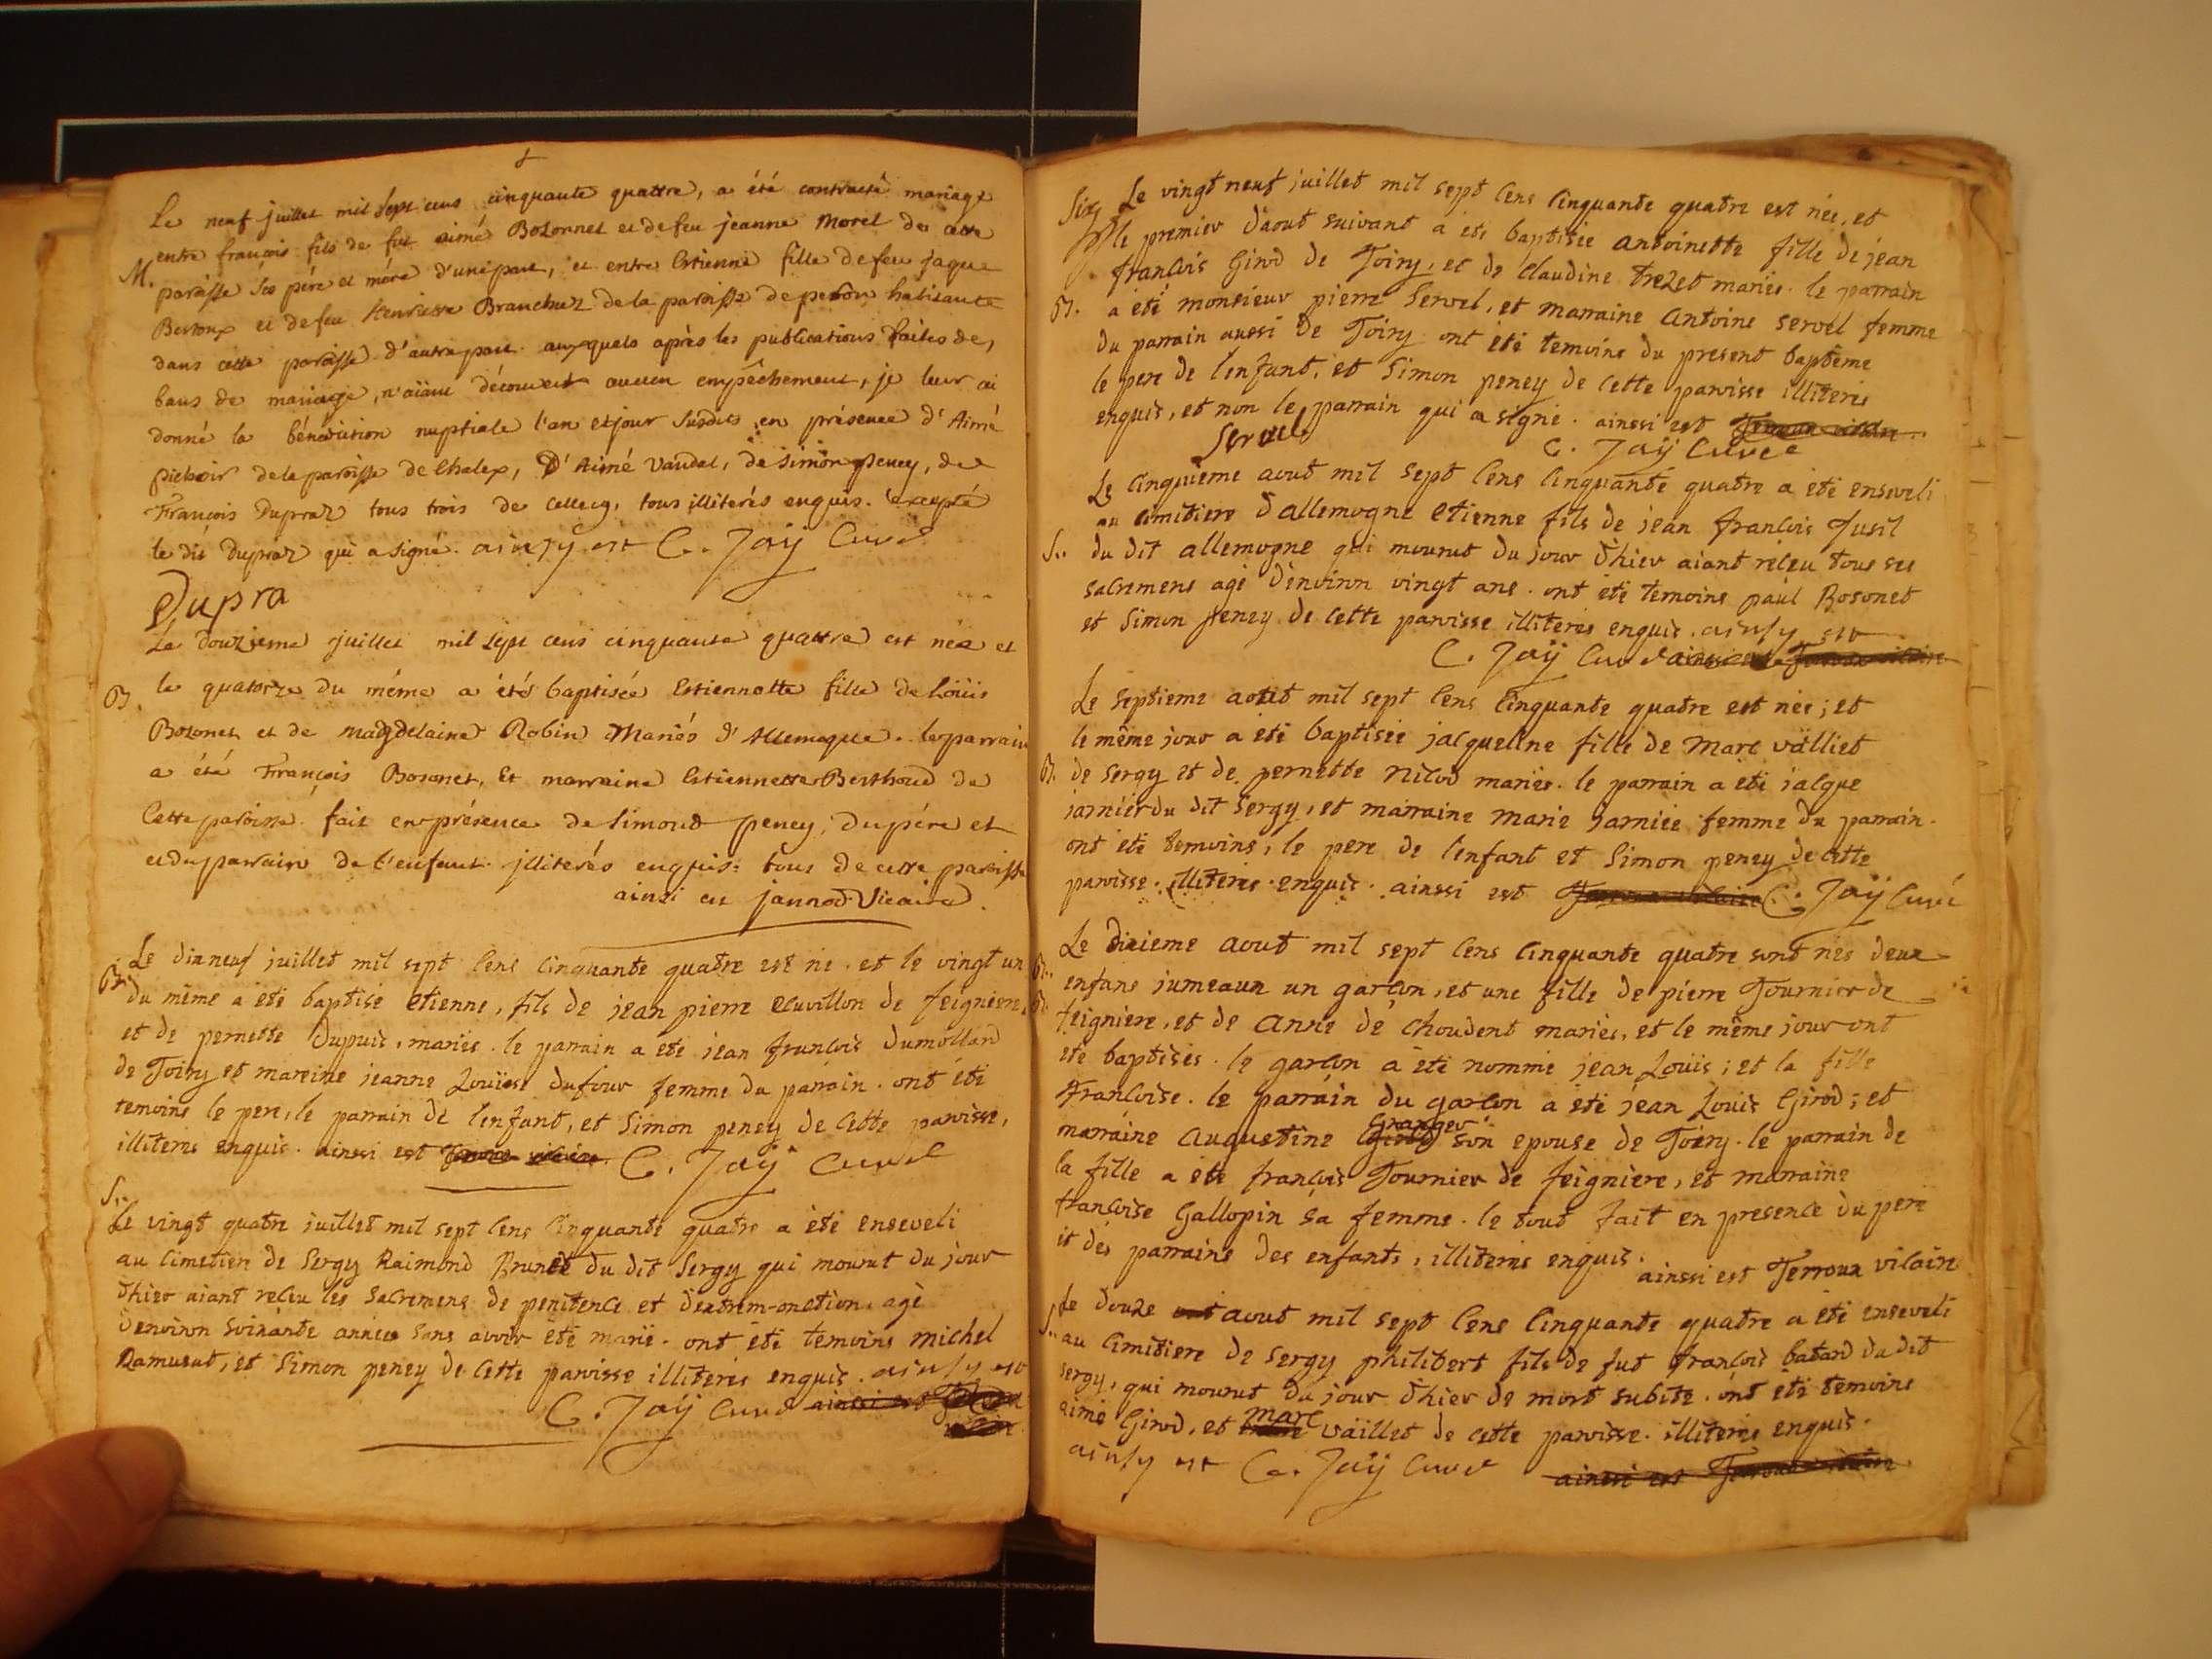 Le neuf juillet mil sept cens cinquante quattre, a été contracté mariage
entre françois fils de fut aimé Bozonnet et de feu jeanne Morel de cette
M. paroisse ses pére et mére d'une part, et entre Estienne fille de feu jaque
Bertoux et de feu Henriette Branchuz de la paroisse de peron habitante
dans cette paroisse d'autre part auxquels après les publications faites de,
bans de mariage, n'aïant découvert aucun empêchement, je leur ai
donné la bénédiction nuptiale l'an et jour susdits en présence d'Aimé
pichoir de la paroisse de Chalex, D'Aimé Vandal, de simon peney, de
François Dupraz tous trois de Cellecy, tous illiterés enquis. excepté
le dit Dupraz qui a signé. ainsy est C. Jaÿ Curé
Dupra
Le douzieme juillet mil sept cens cinquante quattre est née et
B. le quatorze du méme a étés baptisée Estiennette fille de Loüis
Bozonet et de magdelaine Robin Mariés d'Allemogne. le parrain
a été François Bosonet, Et marraine Estiennette Berthoud de
Cette paroisse fait en présence de Simond peney, du pére et
et du parrain de l'enfant illiterés enquis: tous de cette paroisse
ainsi est jannod Vicaire.
Le dixneuf juillet mil sept cens cinquante quatre est né. et le vingt un
B. du même a été baptisé etienne, fils de jean pierre ecuvillon de feigniere,
et de pernette Dupuis, mariés. le parrain a été jean francois Dumollard
de Toiry et mareine jeanne Louïse dufour femme du parrain. ont été
temoins le pere, le parrain de lenfant, et Simon peney de Cette paroisse,
illiterés enquis. ainssi est Terroux vicaire. C. Jaÿ Curé
S..
Le vingt quatre juillet mil sept cens cinquante quatre a été enseveli
au cimetiere de Sergy Raimond Brunet du dit Sergy qui mourut du jour
dhier aiant receu les Sacremens de penitence et dextrem-onction. agé
denviron soixante années sans avoir été marié. ont été temoins michel
Ramusat, et Simon peney de Cette paroisse illiterés enquis. ainsy est
C. Jaÿ Curé ainssi est Terroux
vicaire
Six Le vingt neuf juillet mil sept cens cinquante quatre est née, et
le premier daout suivant a été baptisée antoinette fille de jean
francois Girod de Toiry, et de Claudine trezet mariés. le parrain
B. a été monsieur pierre Servel, et marraine Antoine servel femme
du parrain aussi de Toiry ont été temoins du present baptême
le pere de lenfant, et Simon peney de cette paroisse illiterés
enquis, et non le parrain qui a signé. ainssi est Terroux vicaire
Servel C. Jaÿ Curée
Le cinquieme aout mil sept cens cinquante quatre a été enseveli
au cimitiere dallemogne etienne fils de jean francois Jusil
S.. du dit allemogne qui mourut du jour dhier aiant receu tous ses
sacremens agé denviron vingt ans. ont été temoins paul Bosonet
et Simon peney de cette paroisse illiterés enquis. ainsy est
C. Jaÿ Curé ainssi est Terroux vicaire
Le septieme aout mil sept cens cinquante quatre est née; et
le même jour a été baptisée jacqueline fille de Marc välliet
B. de sergy et de pernette nicod mariés. le parrain a été jacque
jarniér du dit sergy, et marraine marie jarniée femme du parrain.
ont été temoins, le pere de lenfant et Simon peney de cette
paroisse. illiterés enquis. ainssi est Terroux vicaire C. Jaÿ Curé
Le dixieme aout mil sept cens cinquante quatre sont nés deux
B.. enfans jumeaux un garcon, et une fille de pierre Tournier de
B. feigniere, et de Anne de choudent mariés, et le même jour ont
eté baptisés. le garcon a été nommé jean Louis; et la fille
francoise. le parrain du garcon a été jean Louis Girod; et
Granger
marraine Augustine Girod son epouse de Toiry. le parrain de
la fille a eté francois Tournier de feigniere, et marraine
francoise Gallopin sa femme. le tout fait en presence du pere
et des parrains des enfants, illiterés enquis.
ainssi est Terroux vicaire
Le douze aout mil sept cens cinquante quatre a été enseveli
S.. au cimitiere de sergy philibert fils de fut francois batard du dit
sergy, qui mourut du jour dhier de mort subite. ont été temoins
marc
aimé Girod, et vaillet de cette paroisse. illiterés enquis.
ainsy est C. Jaÿ Curé ainssi est Terroux vicaire